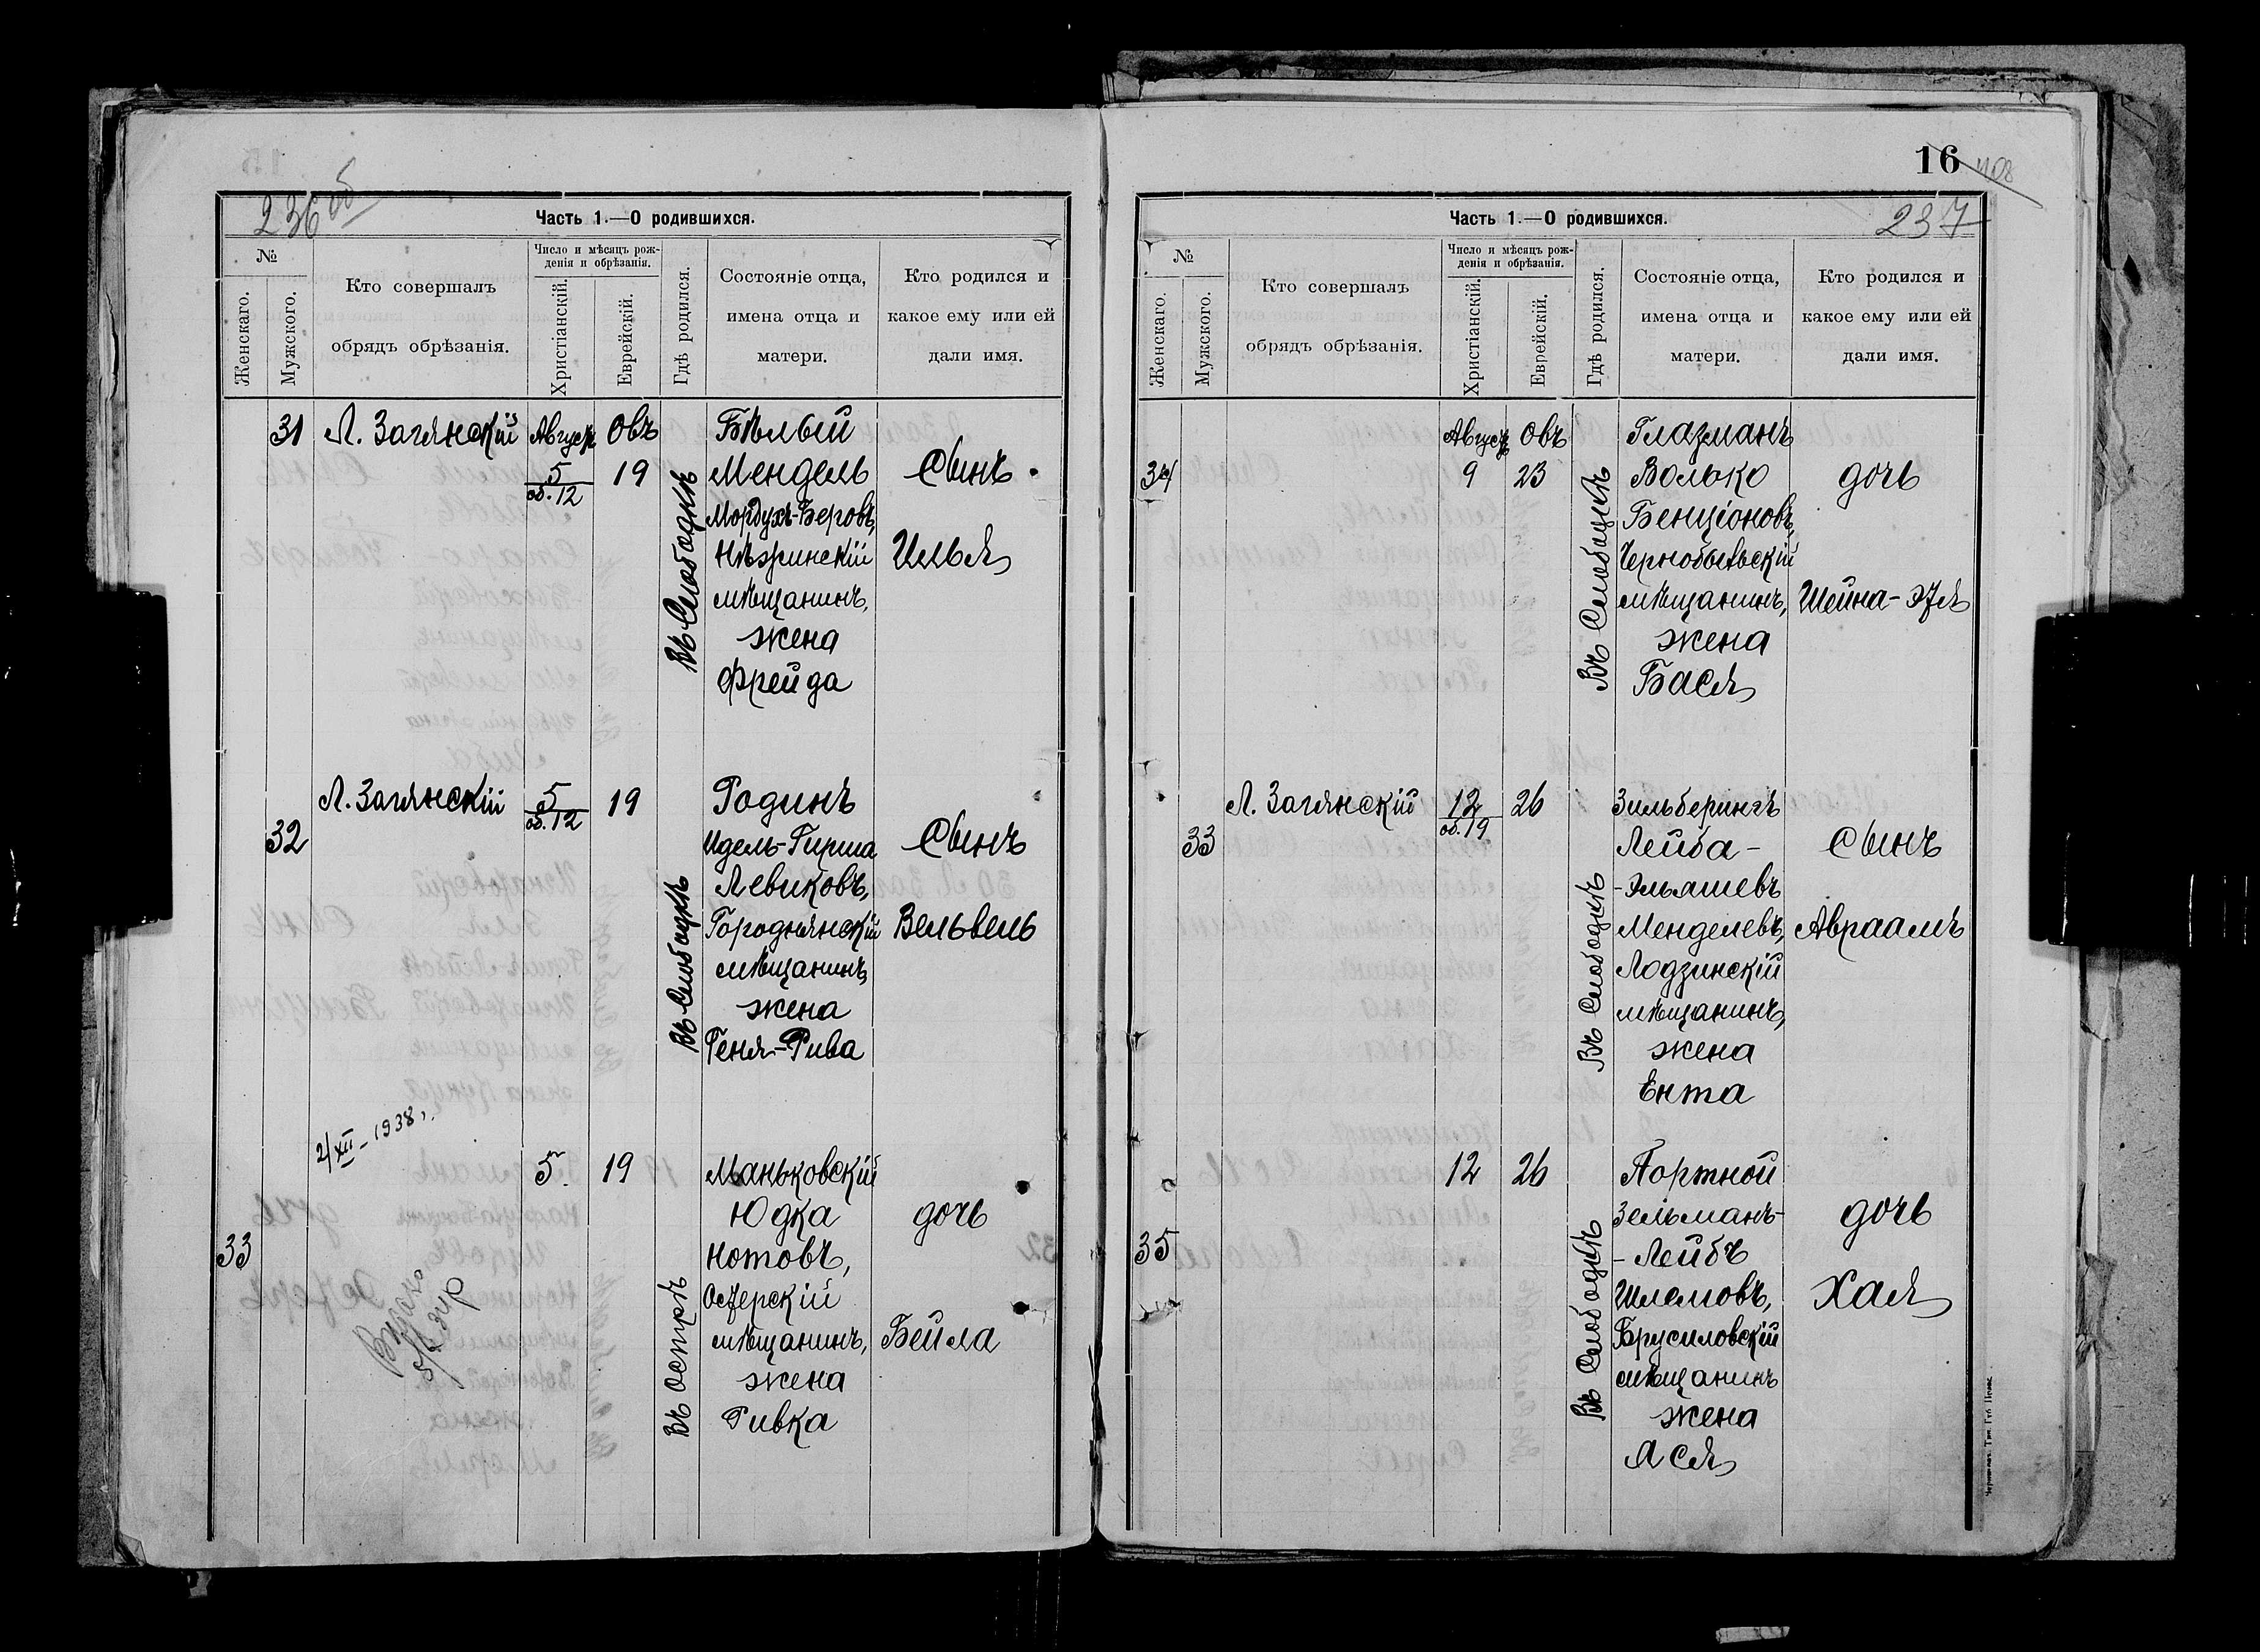 236 об
Часть 1.—О родившихся.
№
Женскаго.
Мужского.
Кто совершалъ
обрядъ обрѣзанія.
Число и мѣсяцъ рож-
денія и обрѣзанія.
Христіанскій.
Еврейскій.
Гдѣ родился.
Состояніе отца,
имена отца и
матери.
Кто родился и
какое ему или ей
дали имя.
31 Л. Загянскій Августъ Овъ Бѣлый
5 19 Мендель Сынъ
об. 12
Мордухъ-Беровъ,
Нѣжинскій Илья
мѣщанинъ,
жена
Фрейда
Въ Слободкѣ
Л. Загянскій 5 19 Родинъ
об. 12
32 Идель-Гирша Сынъ
Левиковъ,
Городнянскій Вельвель
мѣщанинъ,
жена
Геня-Рива
Въ Слободкѣ
2/XII-1938г.
5 19 Маньковскій
Юдка дочь
33 Нотовъ,
Остерскій
мѣщанинъ, Бейла
жена
Ривка
Въ Острѣ
16
237
Часть 1.—О родившихся.
№
Женскаго.
Мужского.
Кто совершалъ
обрядъ обрѣзанія.
Число и мѣсяцъ рож-
денія и обрѣзанія.
Христіанскій.
Еврейскій.
Гдѣ родился.
Состояніе отца,
имена отца и
матери.
Кто родился и
какое ему или ей
дали имя.
Августъ Овъ Глазманъ
34 9 23 Волько дочь
Бенціоновъ,
Чернобыльскій
мѣщанинъ, Шейна-Этя
жена
Бася
Въ Слободкѣ
Л. Загянскій 12 26 Зильберингъ
об. 19
33 Лейба- Сынъ
-Эльяшевъ
Менделевъ, Авраамъ
Лодзинскій
мѣщанинъ,
жена
Ента
Въ Слободкѣ
12 26 Портной
Зельманъ- дочь
35 -Лейбъ
Шлемовъ, Хая
Брусиловскій
мѣщанинъ
жена
Ася
Въ Слободкѣ